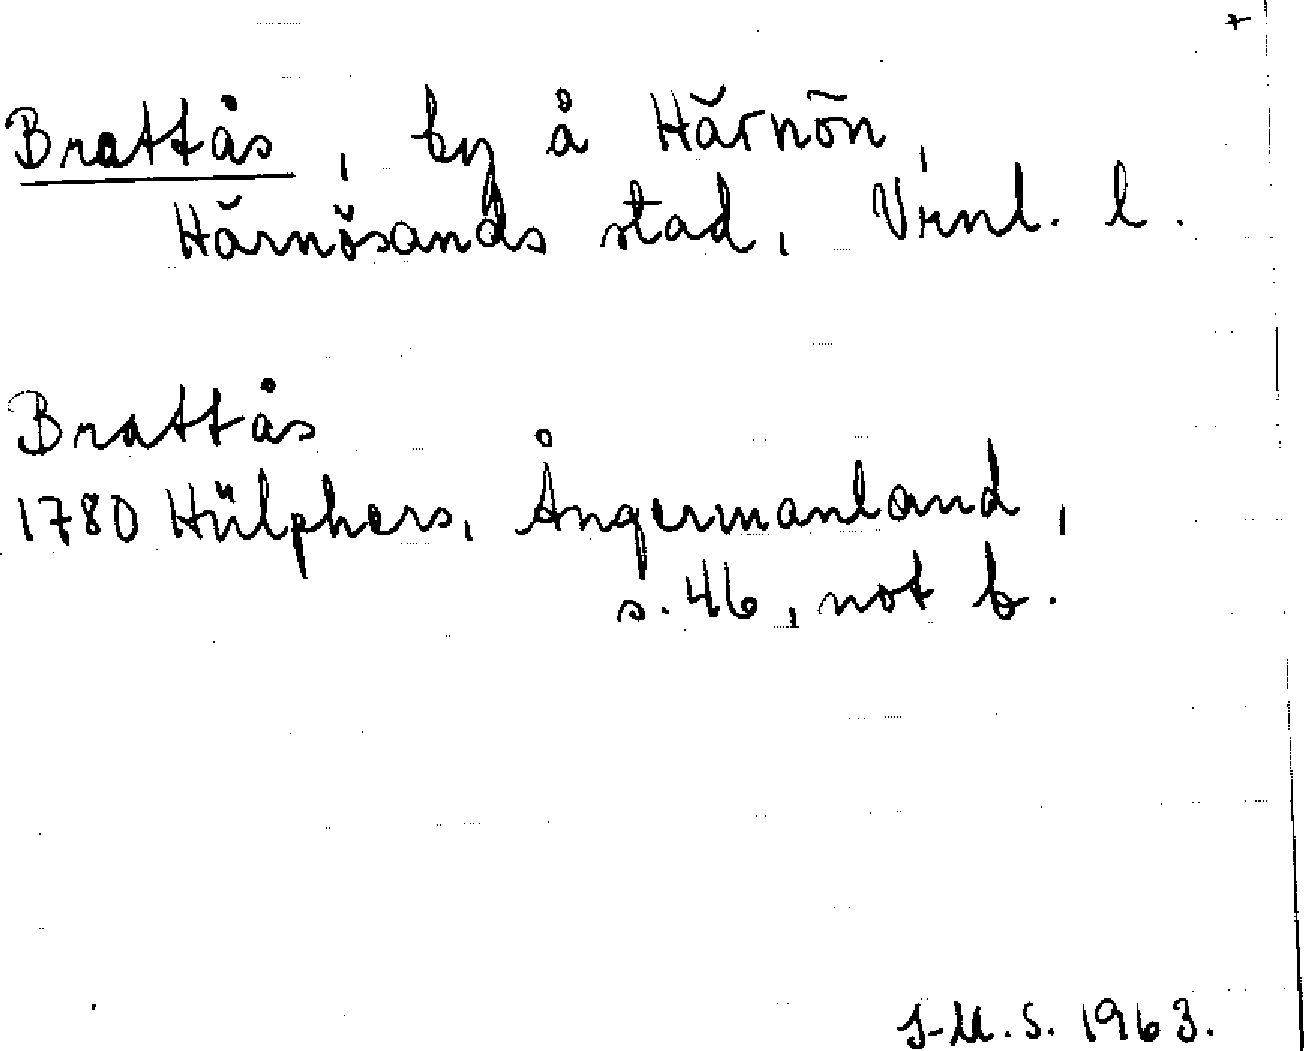 Brattås, by å Härnön,
Härnösands stad, Vrnl. l.
Brattås
1780 Hülphers, Ångermanland,
s. 46, not b.
J-M. S. 1963.